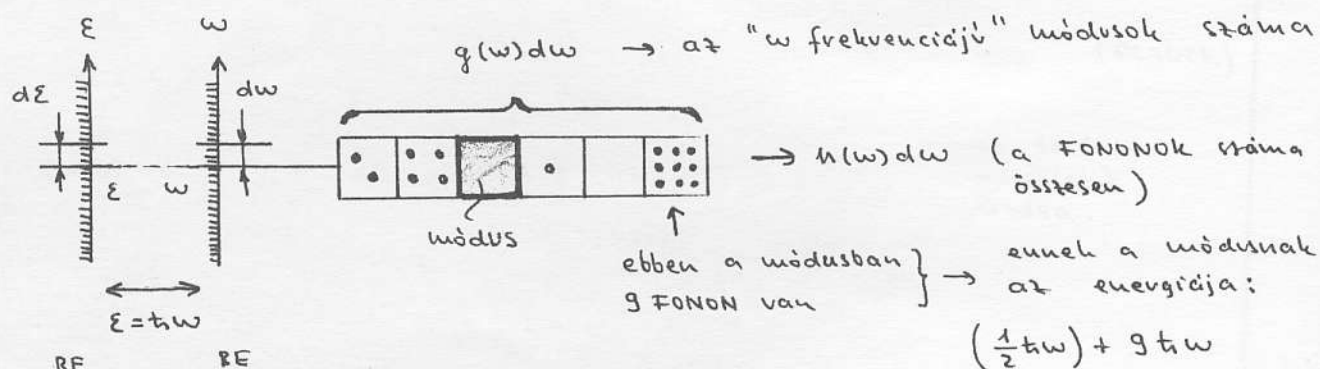 ε ω
g(ω)dω → az "ω frekvenciájú" módusok száma
dε dω
→ n(ω)dω (a FONONOK száma
összesen)
ε ω
módus
ebben a módusban
9 FONON van
→ ennek a módusnak
az energiája:
ε = ħω
(1/2 ħω) + 9 ħω
BE BE